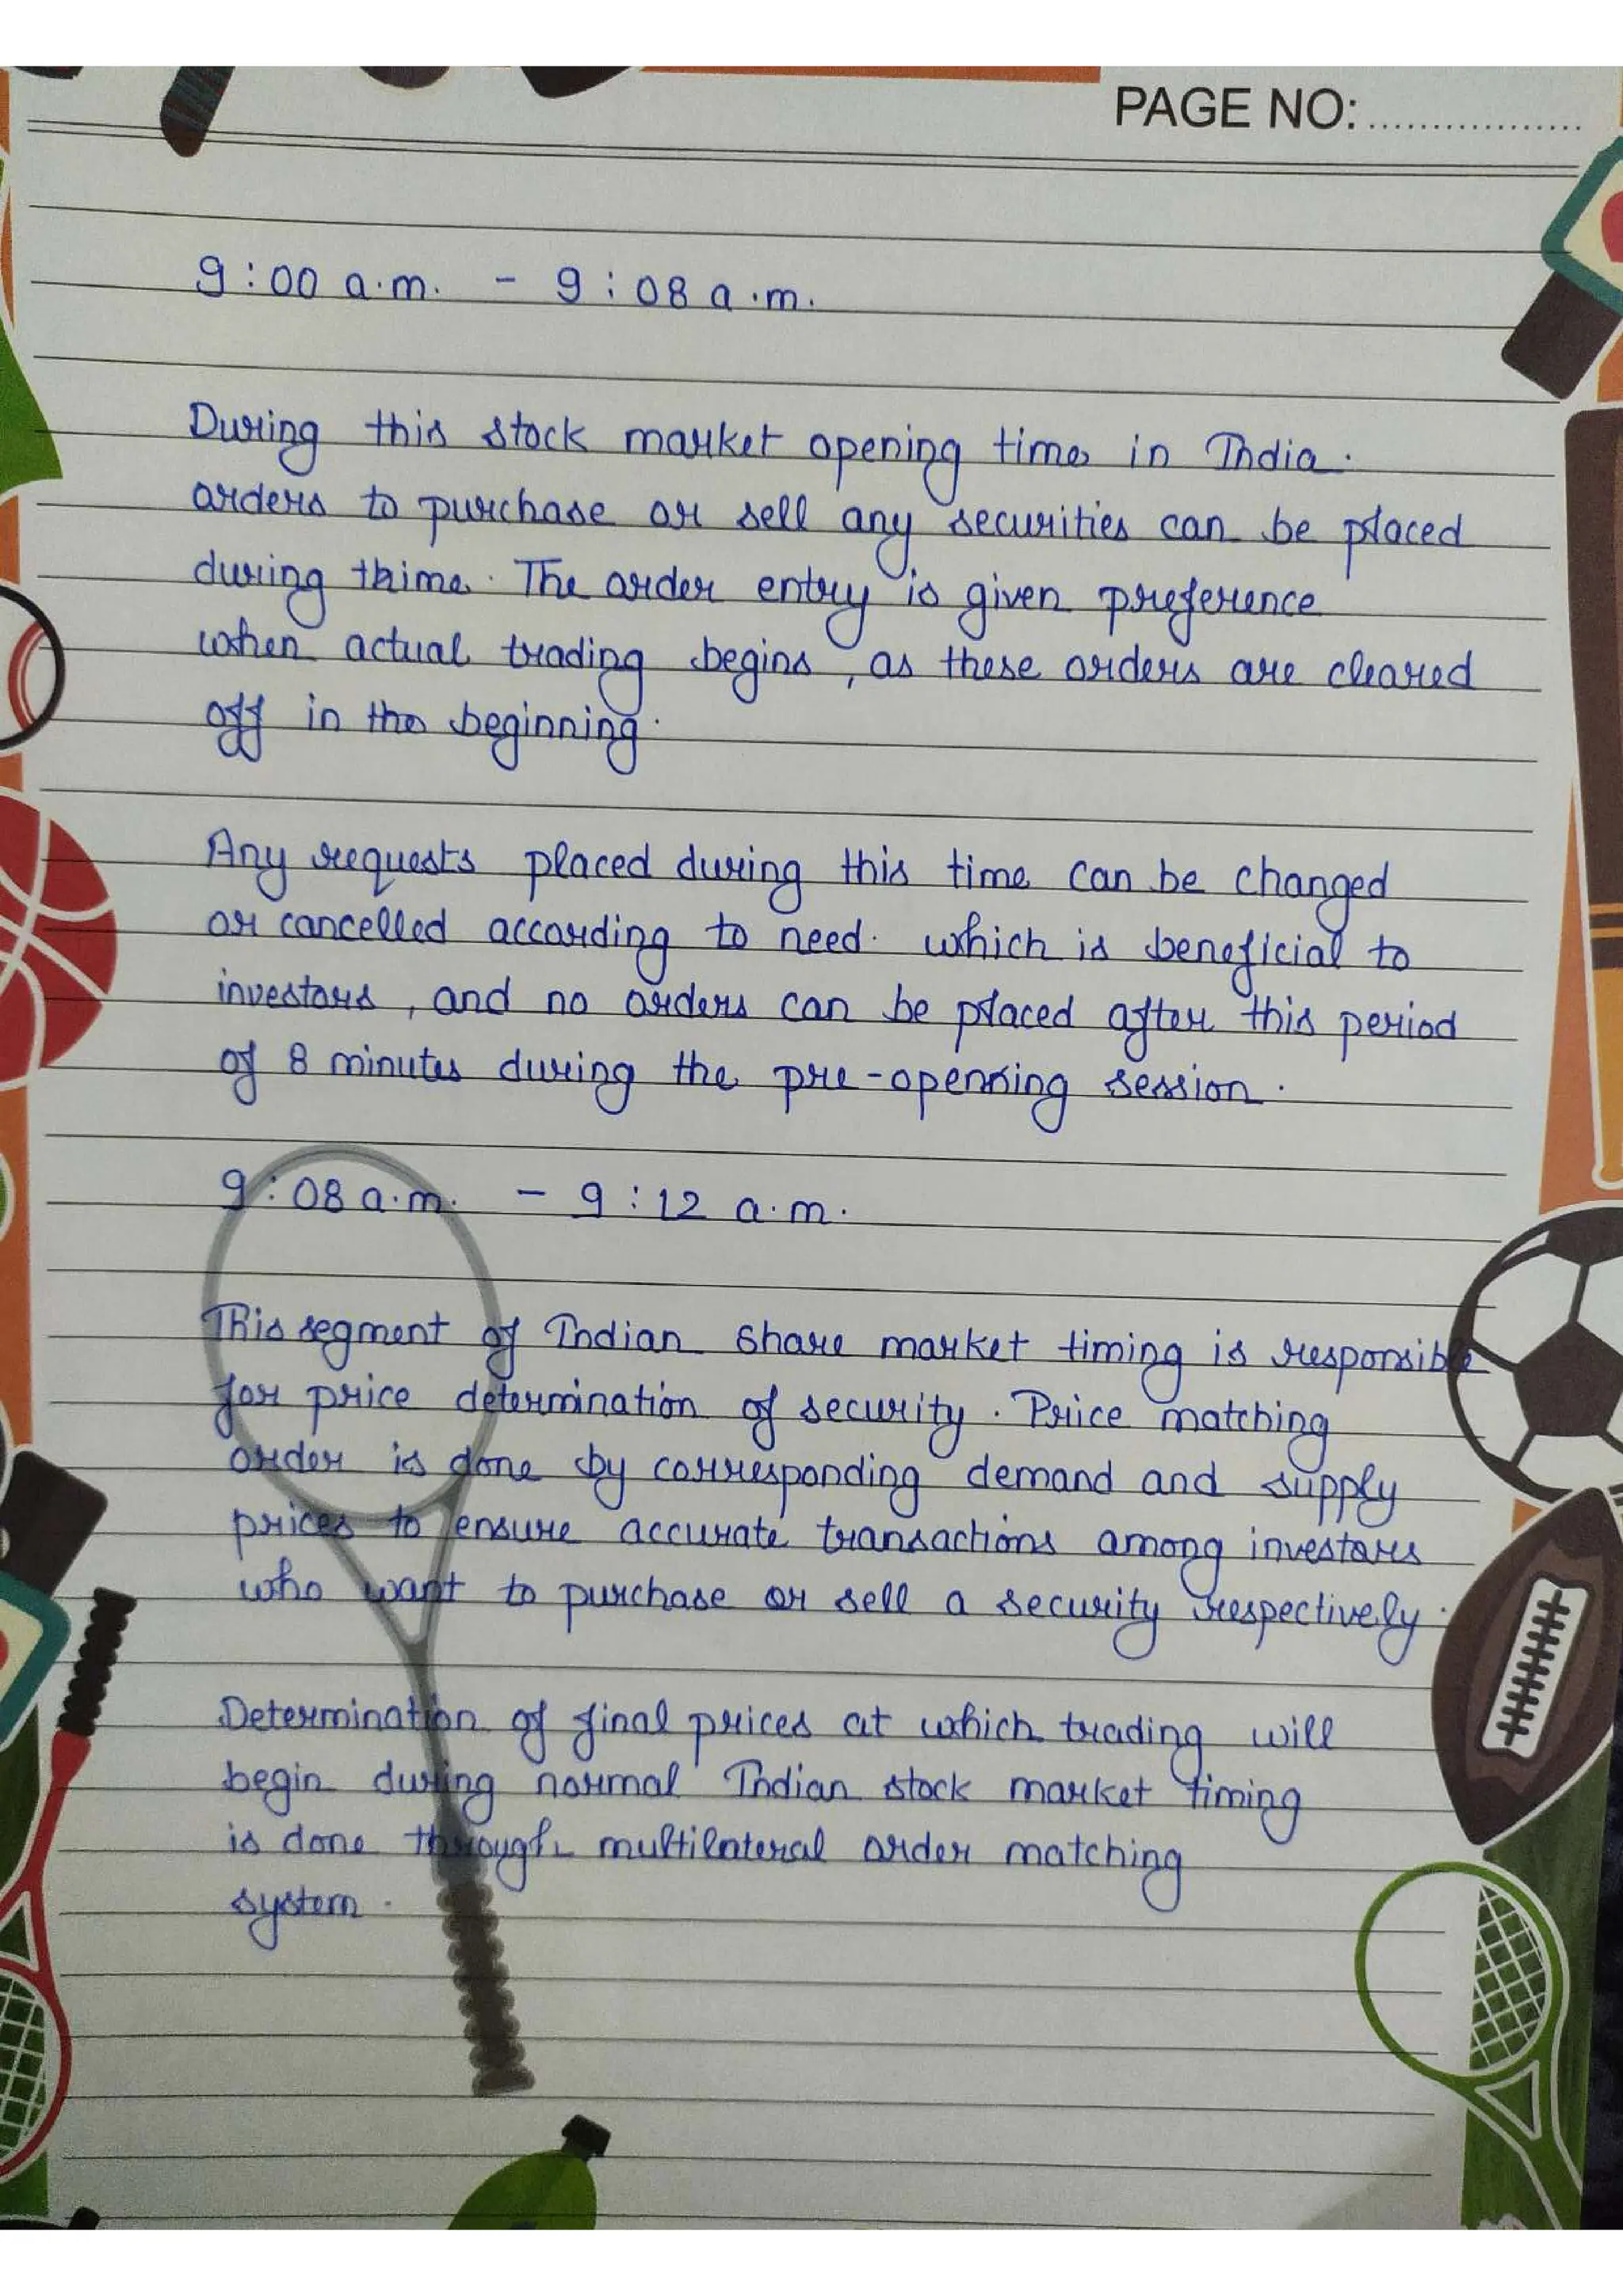 PAGE NO:..................
9:00 a.m. - 9:08 a.m.
During this stock market opening time in India.
orders to purchase or sell any securities can be placed
during thime. The order entry is given preference
when actual trading begins, as these orders are cleared
off in the beginning.
Any requests placed during this time can be changed
or cancelled according to need. which is beneficial to
investors, and no orders can be placed after this period
of 8 minutes during the pre-openning session.
9:08 a.m. - 9:12 a.m.
This segment of Indian Share market timing is responsible
for price determination of security. Price matching
order is done by corresponding demand and supply
prices to ensure accurate transactions among investors
who want to purchase or sell a security respectively.
Determination of final prices at which trading will
begin during normal Indian stock market timing
is done through multilateral order matching
system.